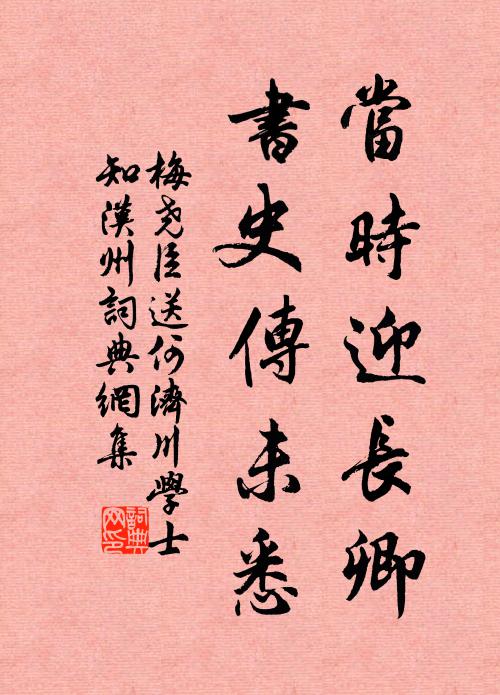 當時迎長卿
書史傳未悉
梅堯臣送何濟川學士
知漢州詞典網集
詞典
网印